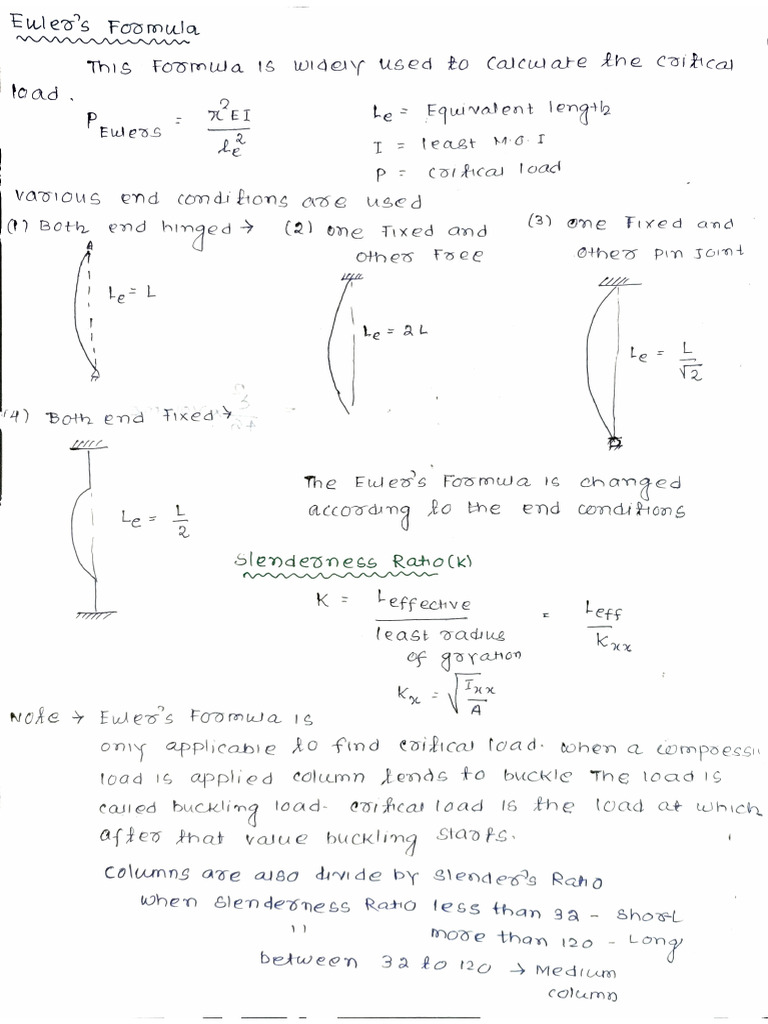 Euler's Formula
This Formula is widely used to calculate the critical
load.
P Eulers = π²EI / le²
Le = Equivalent length
I = least M.O.I
P = critical load
various end conditions are used
(1) Both end hinged →
(2) one Fixed and
other Free
(3) one Fixed and
other pin joint
A
Le = L
Le = 2L
Le = L/√2
(4) Both end Fixed →
Le = L/2
The Euler's Formula is changed
according to the end conditions
Slenderness Ratio (k)
K = Leffective / least radius of gyration = Leff / Kxx
Kx = √(Ixx / A)
Note → Euler's Formula is
only applicable to find critical load. when a compressi
load is applied column tends to buckle The load is
called buckling load. critical load is the load at which
after that value buckling starts.
columns are also divide by slender's Ratio
when slenderness Ratio less than 32 - short
" more than 120 - Long
between 32 to 120 → Medium
column